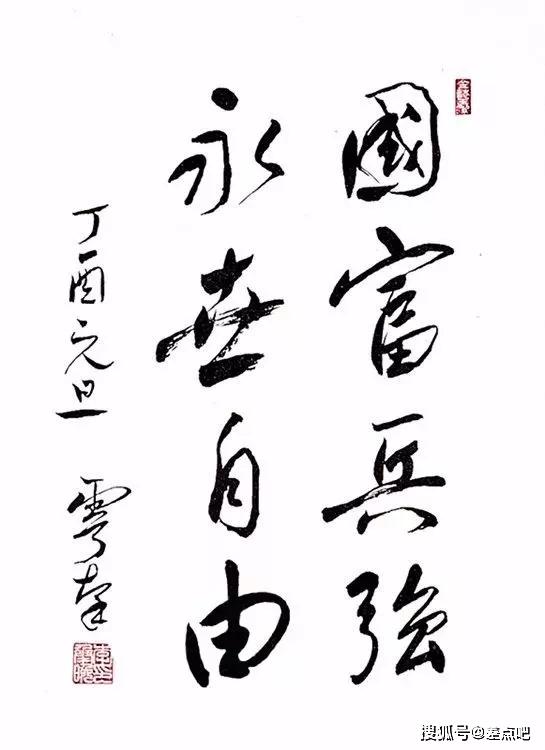 國富兵強
永世自由
丁酉元旦
搜狐号@差点吧